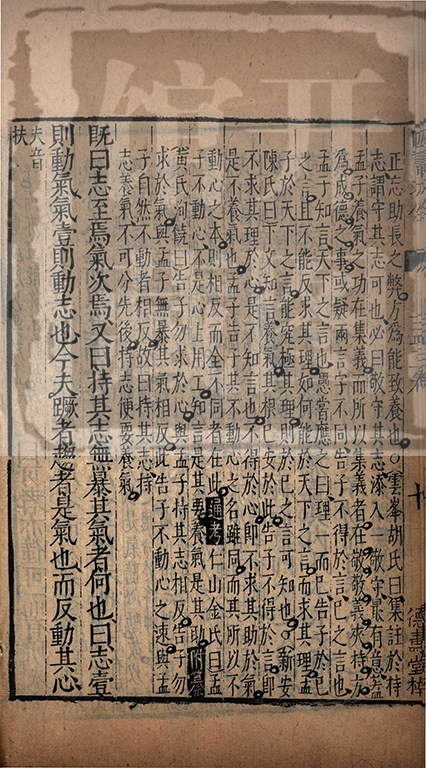 正忘助長之弊方爲能致養也○雲峯胡氏曰集註於持
志謂守其志可也必曰敬守其志添入一敬字果有意蓋
孟子養氣之功在集義而所以集義者在敬敬義夾持方
爲成德之事或疑兩言子不同告子不得於言已之言也
孟子知言天下之言也愚當應之曰理一而已告子於已
之言且不能反求其理如何能於天下之言而求其理孟
子於天下之言能究極其理則於已之言可知也○新安
陳氏曰下文知言養氣其根已安於此告子不得於言
不求其理於心是不知言也不得於心即不求其助於氣
是不養氣也孟子告子其不動心之名雖同而其所以不
動心之本則相反而全不同者在此通考仁山金氏曰孟
子不動心不是心上用工知言是其要養氣是其助附纂
黃氏洵饒曰告子勿求於心與孟子持其志相反告子勿
求於氣與孟子無暴其氣相反此告子不動心之速與孟
子自然不動者相反故曰持其志
志養氣不可分先後持志便要養氣
旣曰志至焉氣次焉又曰持其志無暴其氣者何也曰志壹
則動氣氣壹則動志也今夫蹶者趨者是氣也而反動其心
夫音
扶